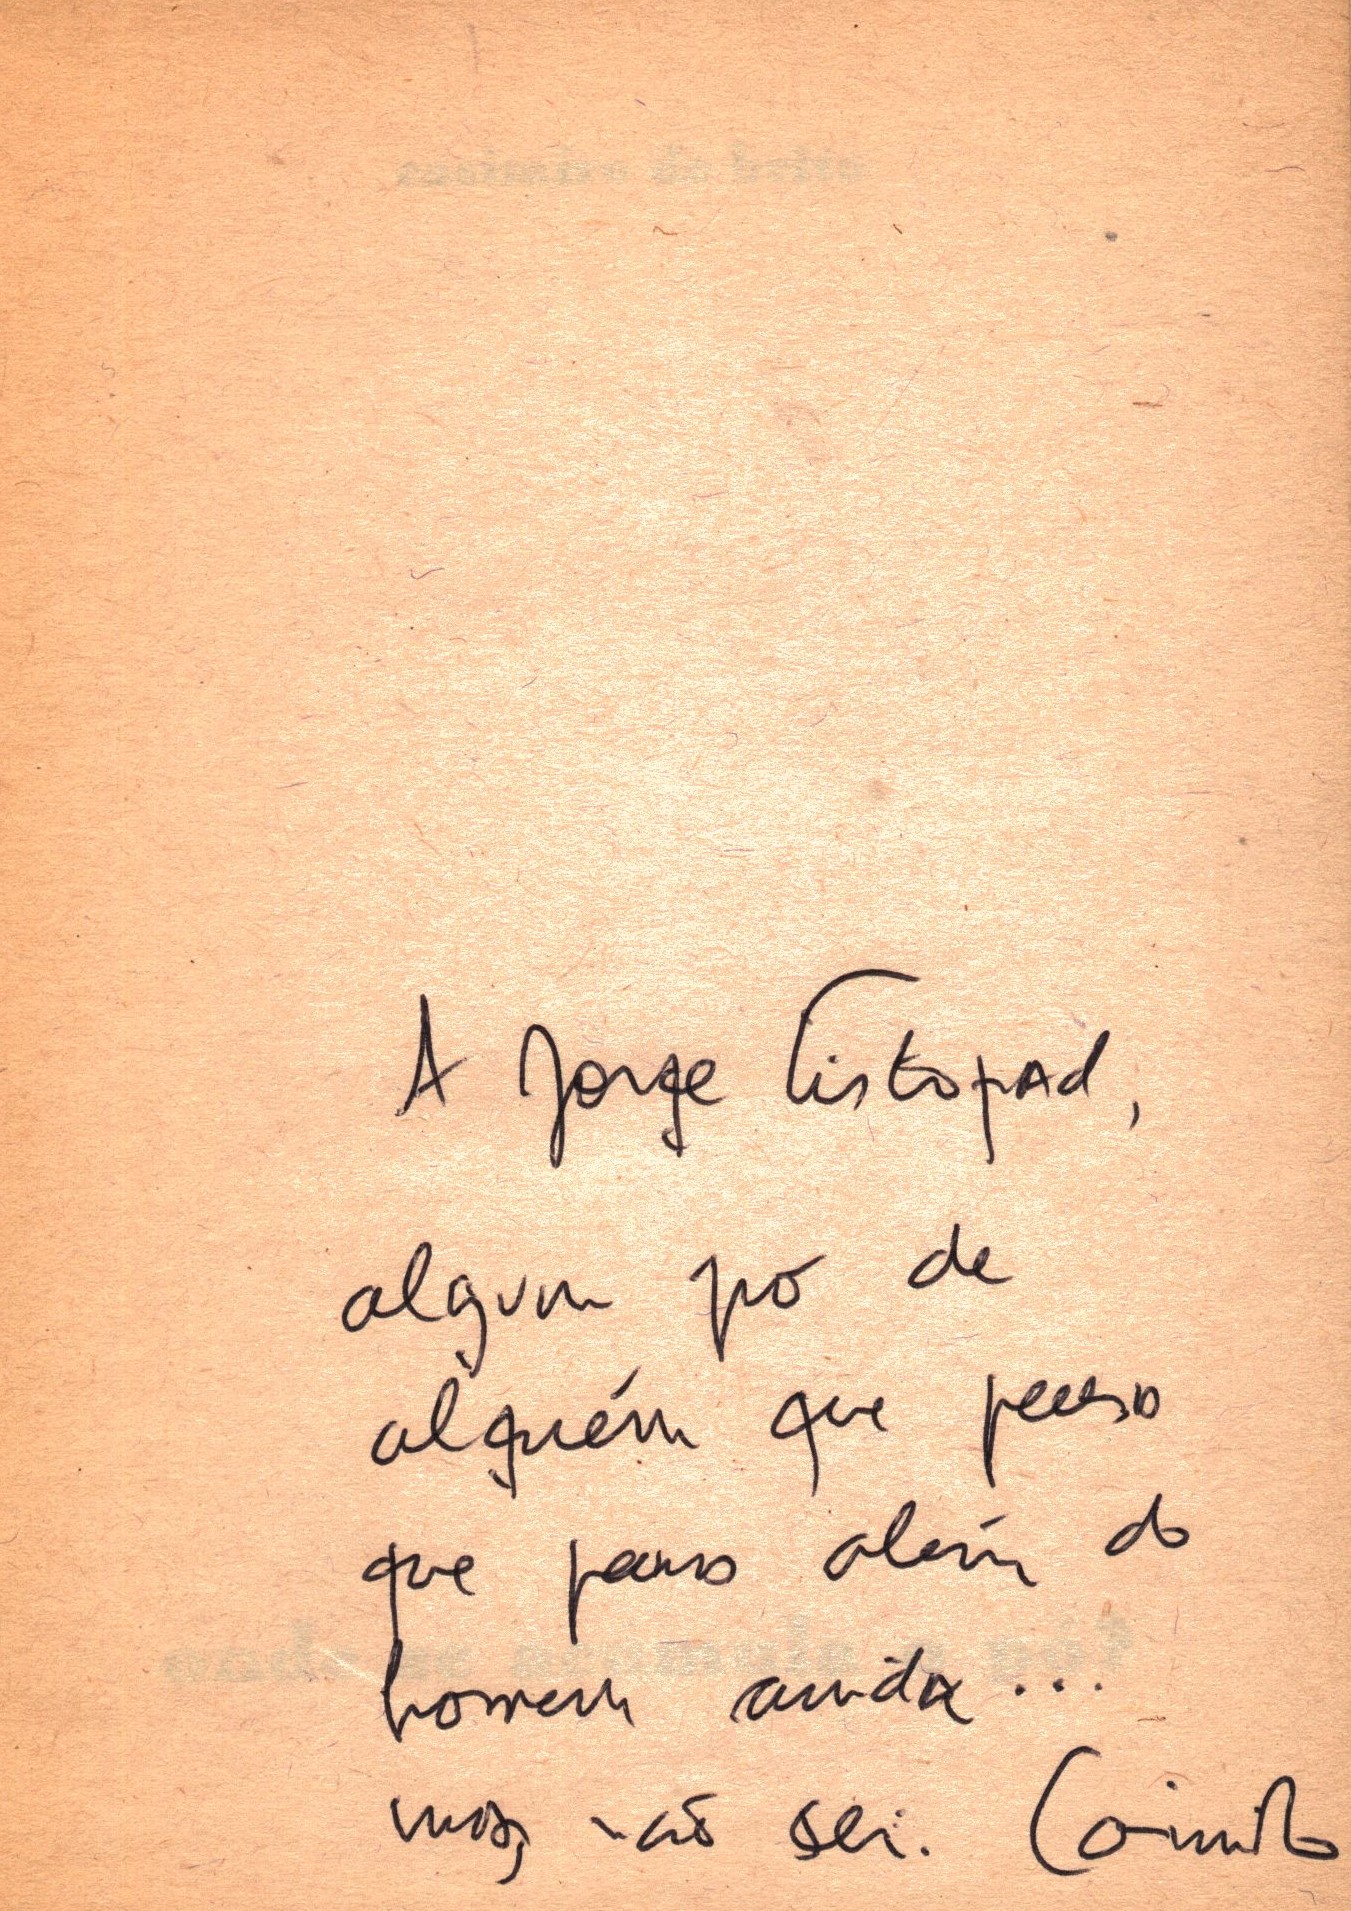 A Jorge Listopad,
algum pó de
alguém que penso
que penso além do
homem ainda...
mas, não sei. Casimiro